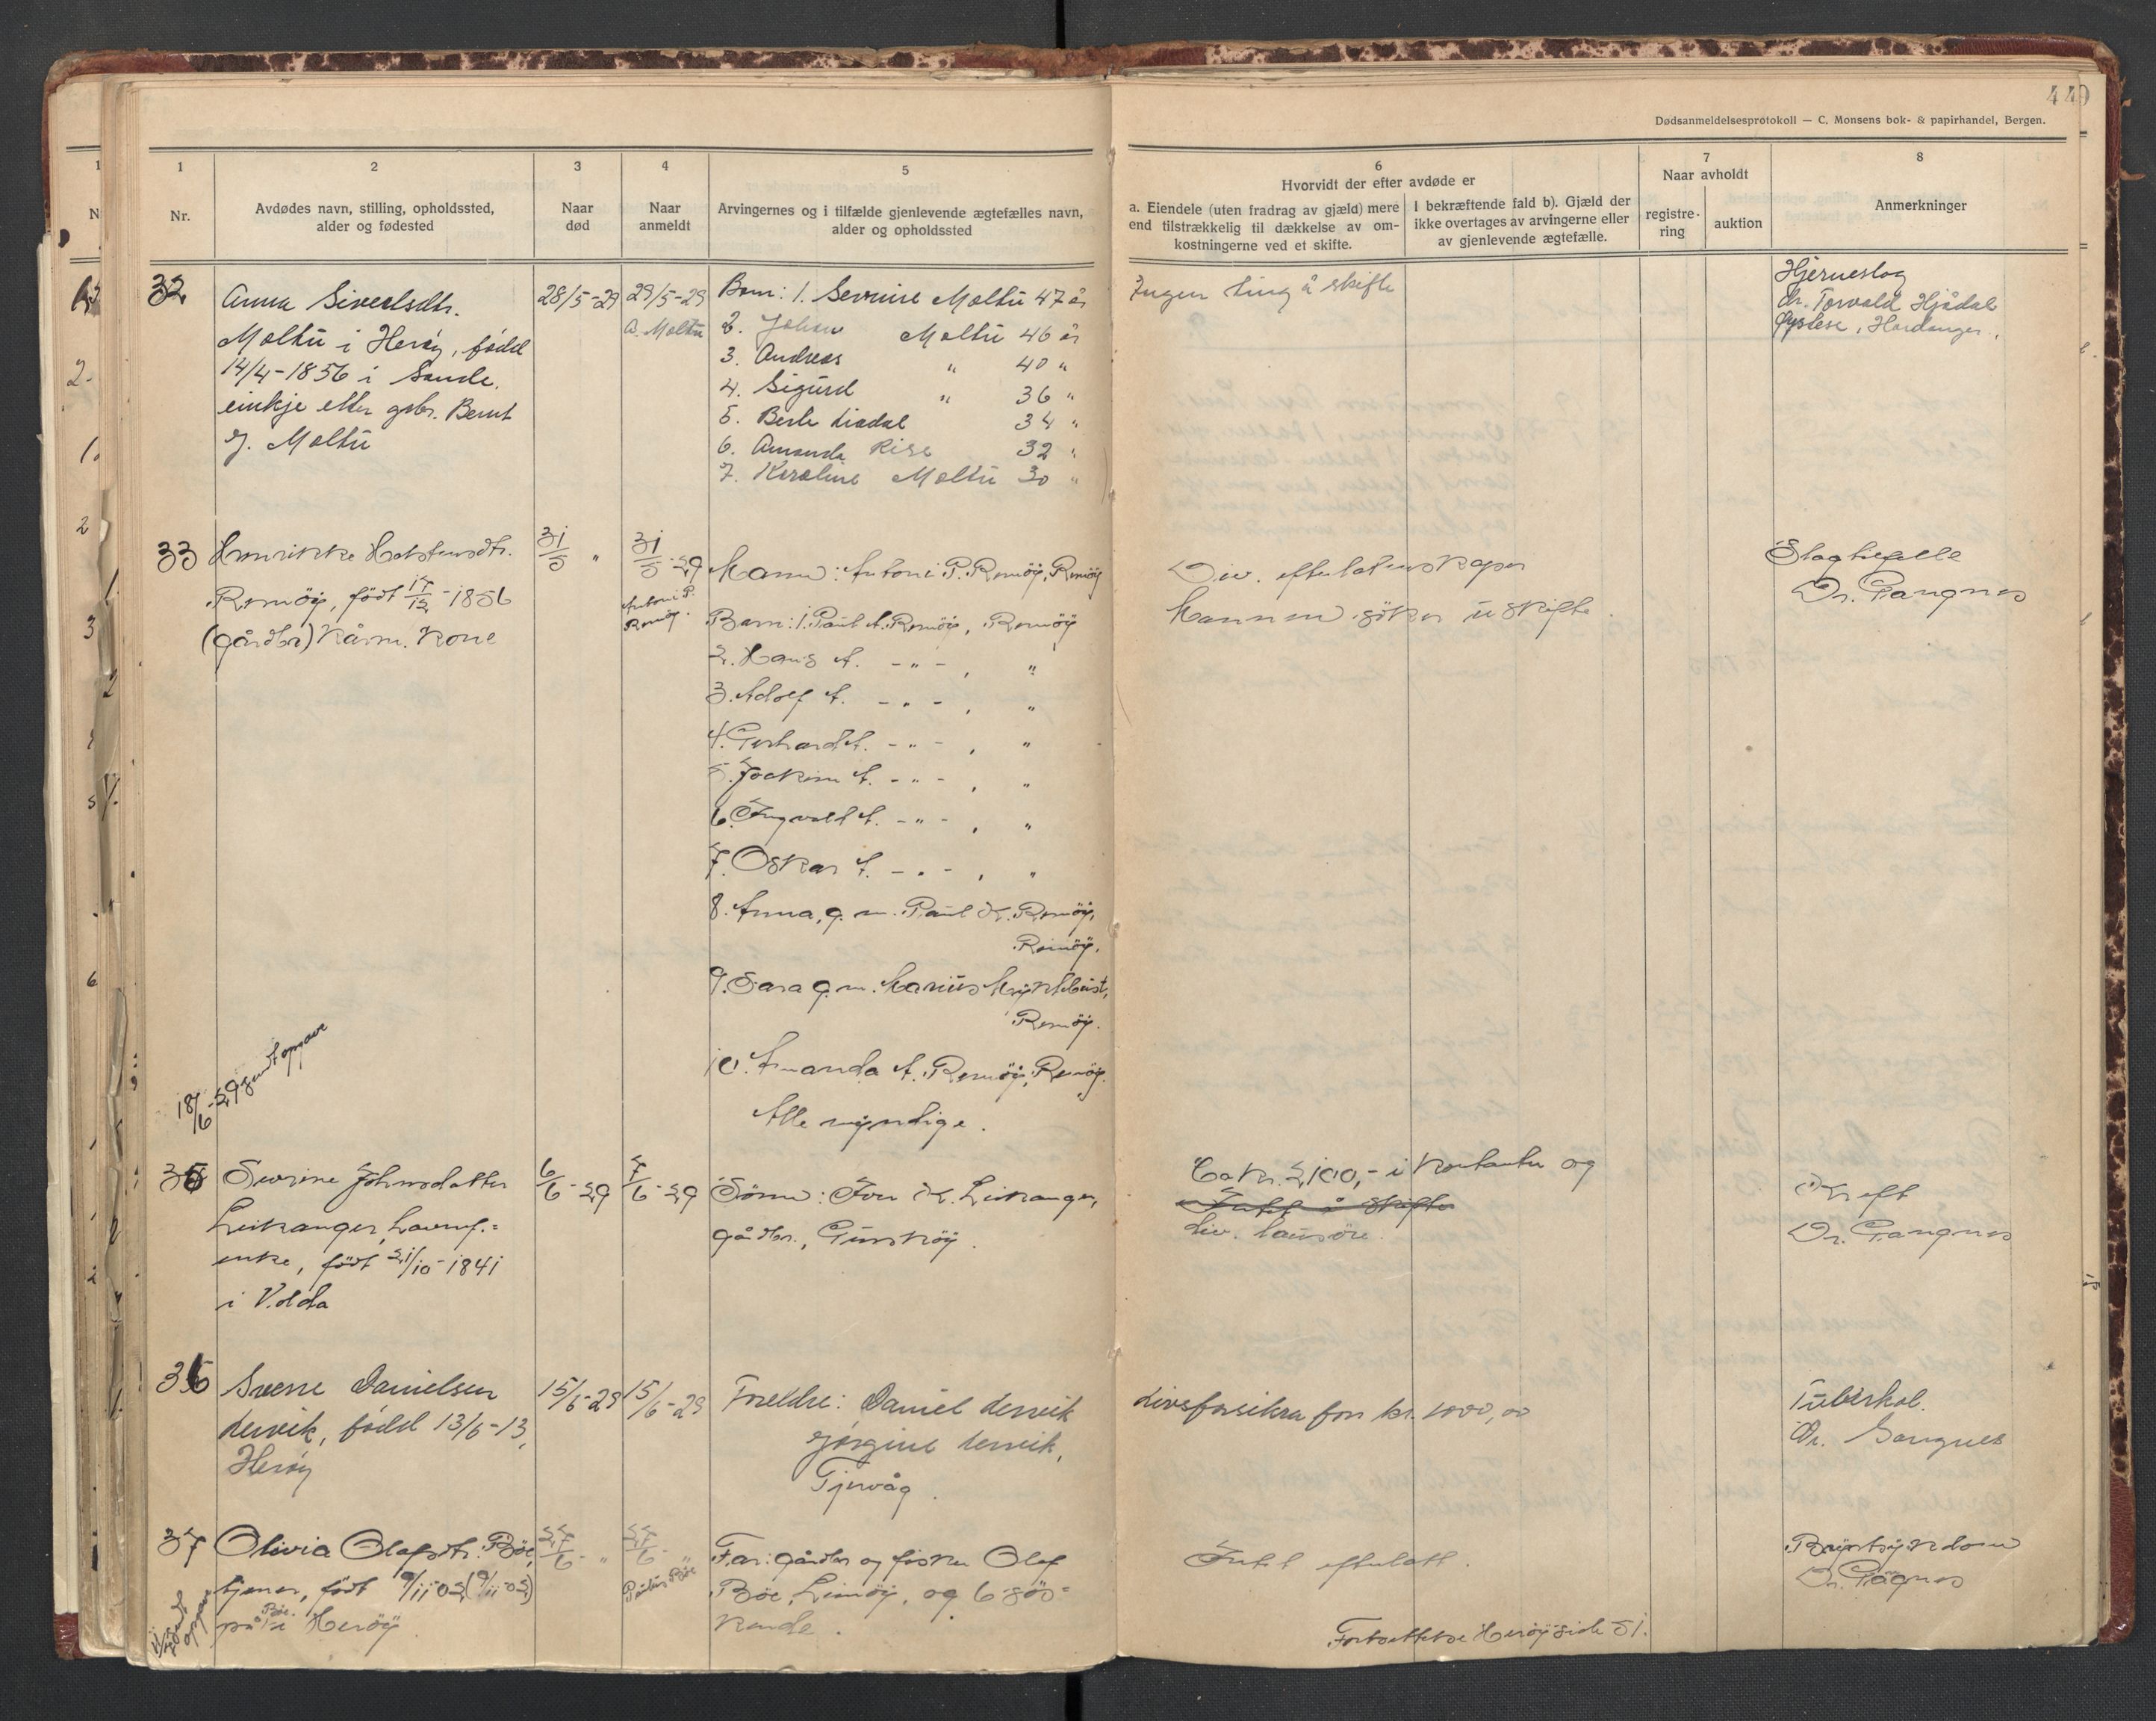 440
Dødsanmeldelsesprotokoll — C. Monsens bok- & papirhandel, Bergen.
1
2
3
4
5
6
7
8
Nr.
Avdødes navn, stilling, opholdssted,
alder og fødested
Naar
død
Naar
anmeldt
Arvingernes og i tilfælde gjenlevende ægtefælles navn,
alder og opholdssted
Hvorvidt der efter avdøde er
a. Eiendele (uten fradrag av gjæld) mere
end tilstrækkelig til dækkelse av om-
kostningerne ved et skifte.
I bekræftende fald b). Gjæld der
ikke overtages av arvingerne eller
av gjenlevende ægtefælle.
Naar avholdt
registre-
ring
auktion
Anmerkninger
32
Anna Sivertsdtr.
Moltu i Herøy, fødd
14/4-1856 i Sande.
einkje etter gbr. Bernt
J. Moltu
28/5-29
29/5-29
A. Moltu
Born: 1. Moltu 47 år
2. Johan Moltu 46 år
3. Andreas " 40 "
4. Sigurd " 36 "
5. Berte 34 "
6. Amanda Rise 32 "
7. Karoline Moltu 30 "
Ingen ting å skifte
Hjerneslag
dr. Torvald Hjådal
Øystese, Hardanger.
33
Henrikke
Remöy, födt 17/12-1856
(gårdbr) kårm. kone
31/5 "
31/5-29
Antoni P.
Remöy.
Mann: Antoni P. Remöy, Remöy
Barn: 1. Paul A. Remöy, Remöy
2. Hans A. -"- , "
3. Adolf A. -"- , "
4. Gerhard A. -"- , "
5. Joakim A. -"- , "
6. Ingvald A. -"- , "
7. Oskar A. -"- , "
8. Anna, g. m. Paul K. Remöy,
Remöy.
9. Sara g. m. Marius Myklebust,
Remöy.
10. Amanda A. Remöy, Remöy.
Alle myndige.
Div. efterlatenskaper
Mannen söker uskifte.
Slagtilfelle
Dr. Gangnes
18/6-29 sendt opgave
35
Sevrine Johnsdatter
Leikanger,
enke, födt 21/10-1841
i Volda
6/6-29
7/6-29
Sönn: Iver K. Leikanger,
gårdbr., Gursköy.
Ca kr. 2100,- i kontanter og
Intet å skifte
div. lausöre.
Kreft
Dr. Gangnes
36
Sverre Danielsen
Lervik, fødd 13/6-13,
Herøy
15/6-29
15/6-29
Foreldre: Daniel Lervik
Jørgine Lervik,
Tjervåg.
Livsforsikra for kr. 1000,00
Tuberkol.
Dr. Gangnes
37
Olivia Olafsdtr. Böe,
tjener, födt 9/11-02 (9/11-02)
på Böe i Herøy
27/6- "
27/6- "
Paulus Böe
Far: gårdbr og fisker Olaf
Böe, Leinöy, og 6 sös-
kende.
Intet efterlatt.
Brystsykdom
Dr. Gagnes
sendt
opgave
Fortsettelse Herøy side 51.